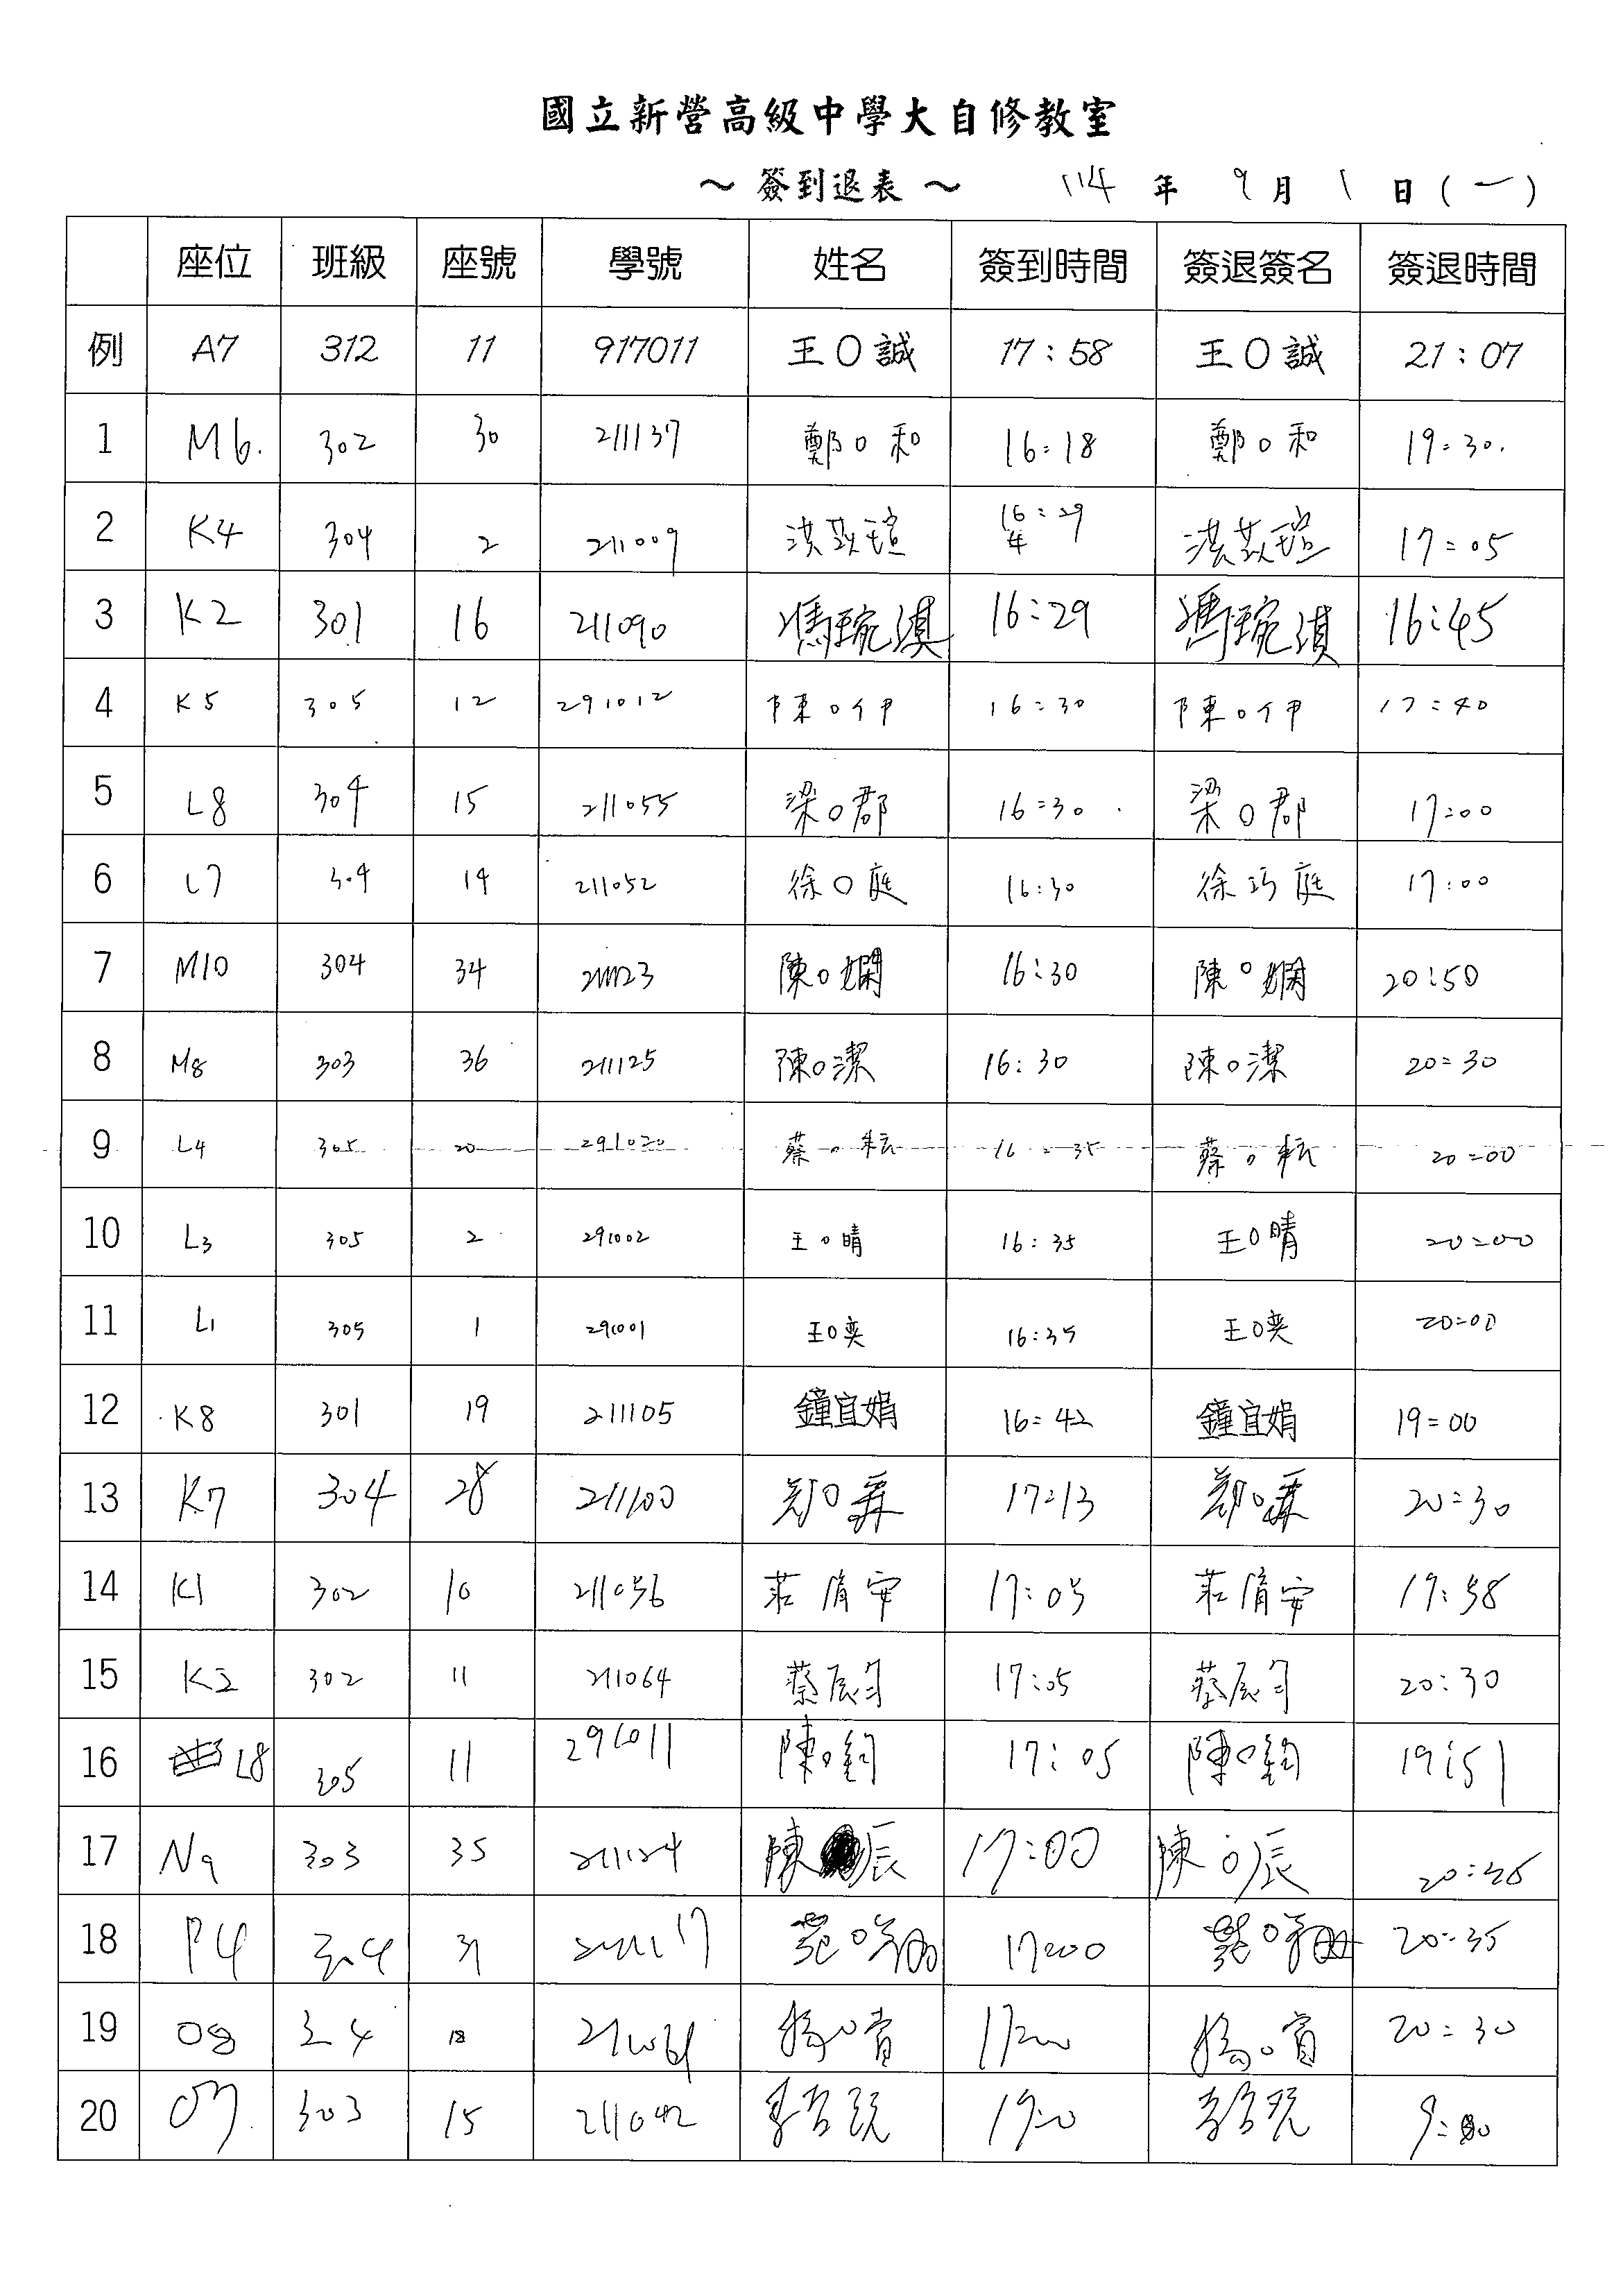 國立新營高級中學大自修教室
～ 簽到退表 ～ 114 年 9 月 1 日 (一)
座位 班級 座號 學號 姓名 簽到時間 簽退簽名 簽退時間
例 A7 312 11 917011 王○誠 17:58 王○誠 21:07
1 M6. 302 30 211137 鄭○和 16:18 鄭○和 19:30.
2 K4 304 2 211009 16:29 17:05
3 K2 301 16 211090 馮琬淇 16:29 馮琬淇 16:45
4 K5 305 12 291012 陳○伊 16:30 陳○伊 17:40
5 L8 304 15 211055 梁○郡 16:30 梁○郡 17:00
6 L7 304 14 211052 徐○庭 16:30 徐巧庭 17:00
7 M10 304 34 211123 陳○嫻 16:30 陳○嫻 20:50
8 M8 303 36 211125 陳○潔 16:30 陳○潔 20:30
9 L4 305 20 291020 蔡○耘 16:35 蔡○耘 20:00
10 L3 305 2 291002 王○晴 16:35 王○晴 20:00
11 L1 305 1 291001 王○奕 16:35 王○奕 20:00
12 K8 301 19 211105 鐘宜娟 16:42 鐘宜娟 19:00
13 K7 304 28 211100 17:13 20:30
14 K1 302 10 211056 莊 安 17:05 莊 安 19:58
15 K2 302 11 211064 蔡辰 17:05 蔡辰 20:30
16 L8 305 11 291011 陳○鈞 17:05 陳○鈞 19:51
17 N9 303 35 211124 陳 辰 17:00 陳○辰
18 P4 304 31 17:00 20:35
19 O8 304 18 17:00 20:30
20 O7 303 15 211042